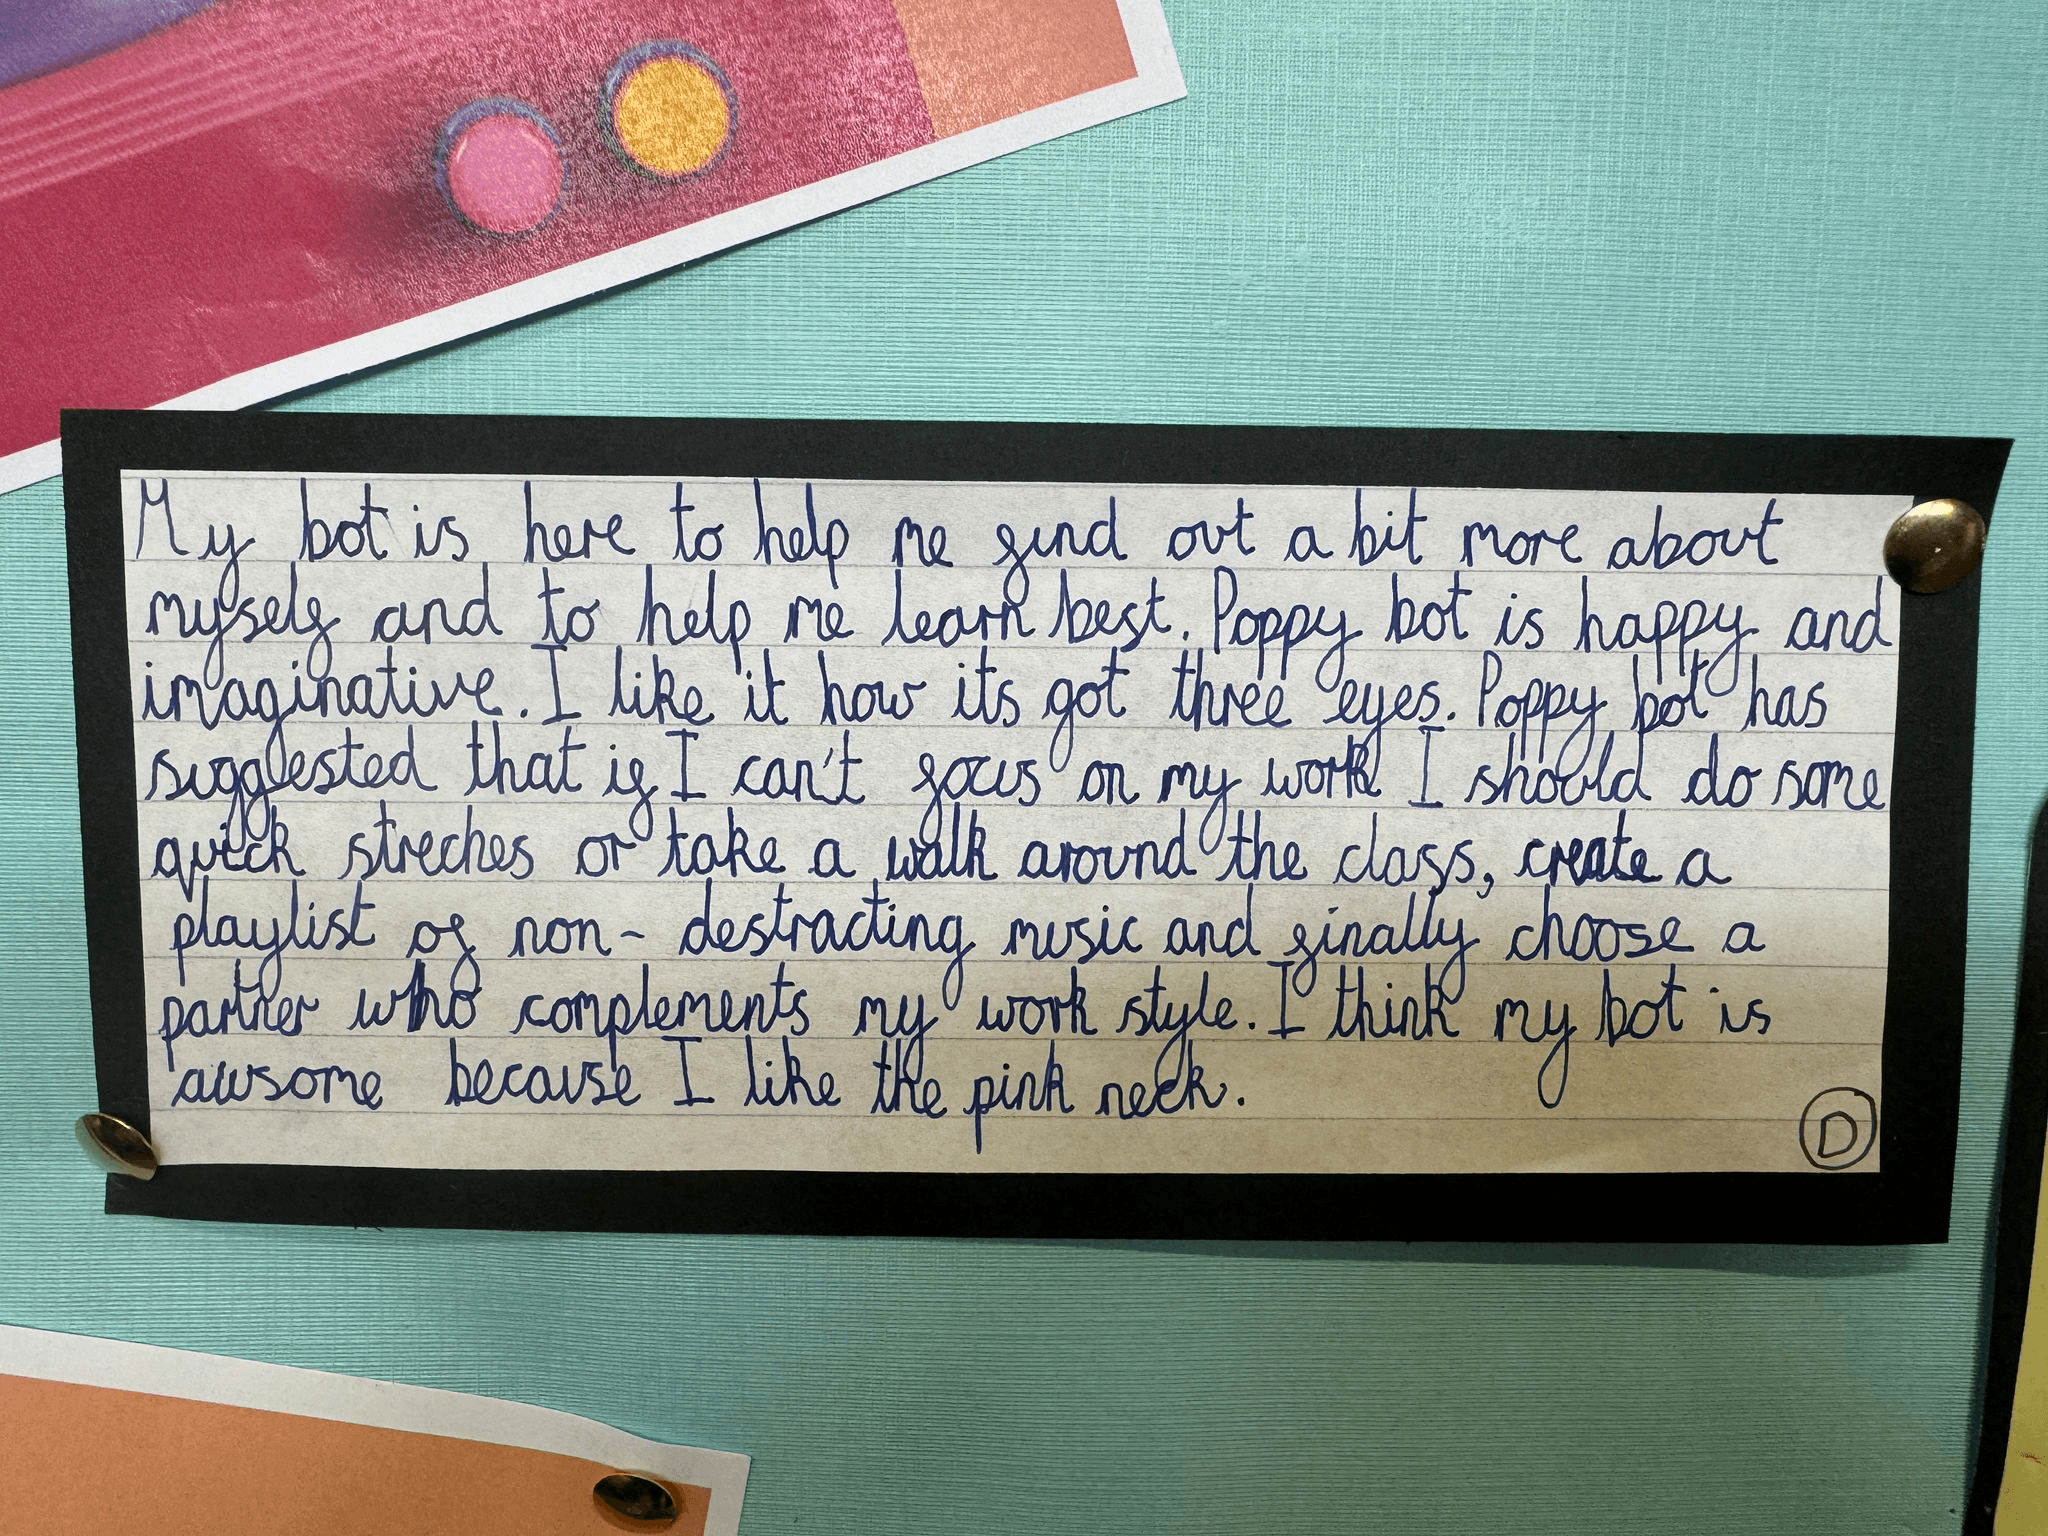 My bot is here to help me find out a bit more about
myself and to help me learn best. Poppy bot is happy and
imaginative. I like it how its got three eyes. Poppy bot has
suggested that if I can't focus on my work I should do some
quick streches or take a walk around the class, create a
playlist of non- destracting music and finally choose a
partner who complements my work style. I think my bot is
awsome because I like the pink neck.
D